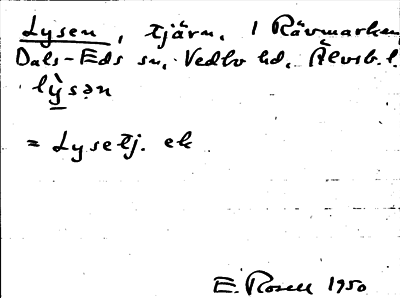 Lysen, tjärn, 1 Rävmarken
Dals-Eds sn, Vedbo hd, Älvsb. l.
lỳsən
= Lysetj. ek
E. Rosell 1950